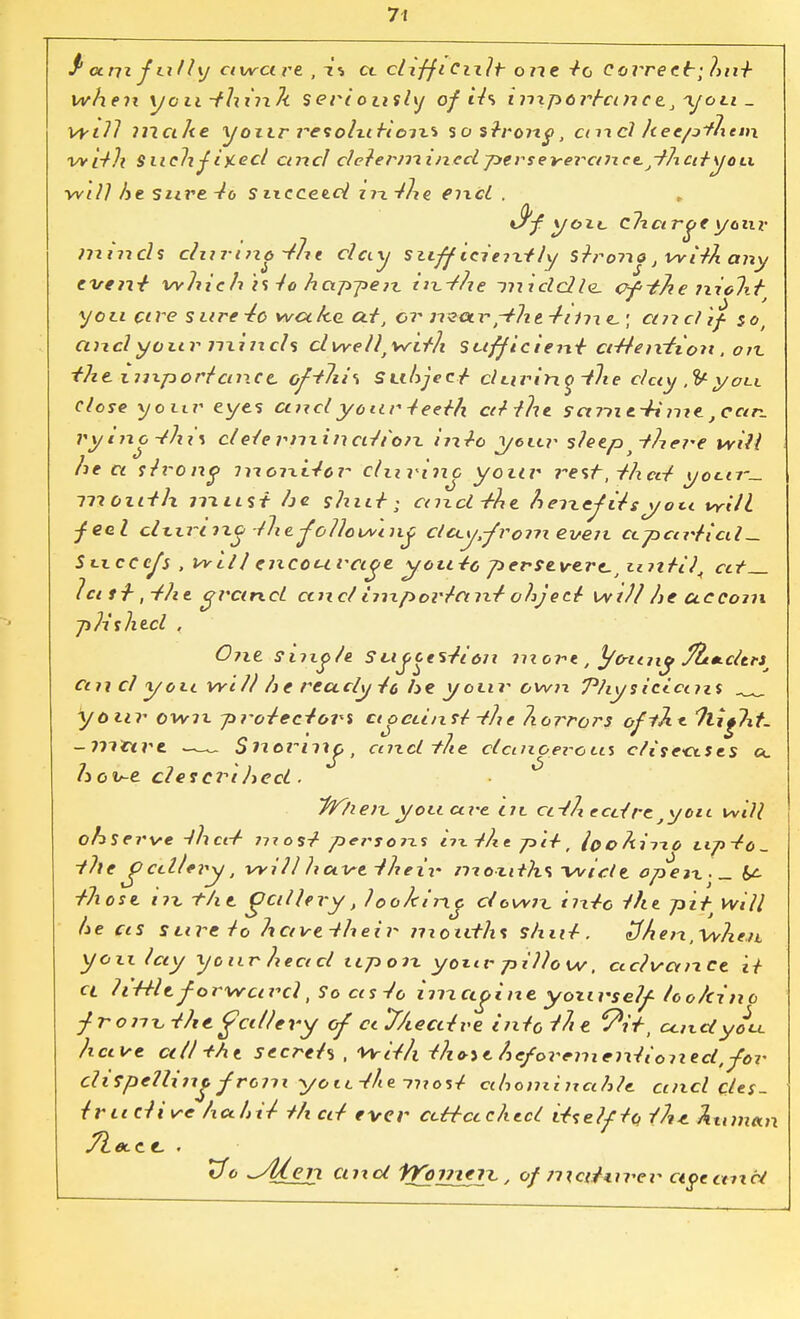 71
I am fully aware, is a difficult one to correct; but
when you think seriously of its importance, you -
will make your resolutions so strong, and keep them
with such fixed and determined perseverance, that you
will be sure to succeed in the end.
If you charge your
minds during the day sufficiently strong, with any
event which is to happen in the middle of the night,
you are sure to wake at, or near, the time; and if so,
and your minds dwell, with sufficient attention, on
the importance of this subject during the day, & you
close your eyes and your teeth at the same time, car-
rying this determination into your sleep, there will
be a strong monitor during your rest, that your—
mouth must be shut; and the benefits you will
feel during the following day, from even a partial—
Success, will encourage you to persevere, until, at—
last, the grand and important object will be accom
plished,
One single suggestion more, Young Readers,
and you will be ready to be your own Physicians —
your own protectors against the horrors of the Night-
-mare —— Snoring, and the dangerous diseases a
bove described.
When you are in a theatre, you will
observe that most persons in the pit, looking up to-
the gallery, will have their mouths wide open; — &
those in the gallery, looking down into the pit, will
be as sure to have their mouths shut. Then, when
you lay your head upon your pillow, advance it
a little forward, so as to imagine yourself looking
from the gallery of a Theatre into the Pit, and you
have all the secrets, with those beforementioned, for
dispelling from you the most abominable and des-
tructive habit that ever attached itself to the human
Race.
To Men and Women, of maturer age and